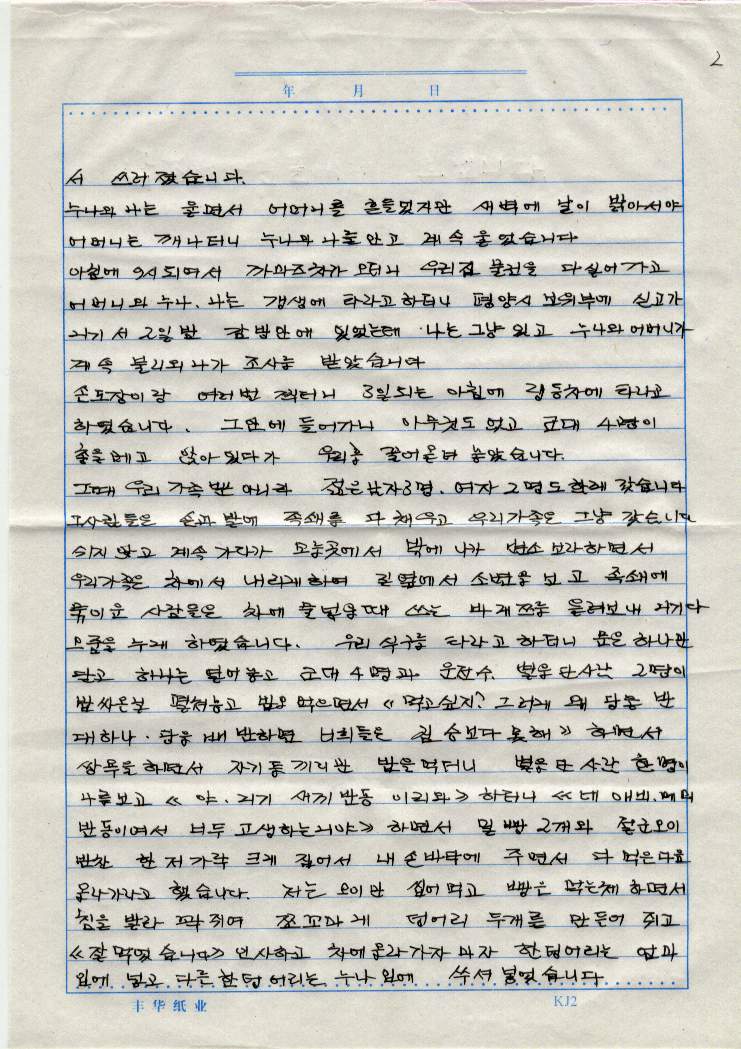 2
年 月 日
서 쓰러졌습니다.
누나와 나는 울면서 어머니를 흔들었지만 새벽에 날이 밝아서야
어머니는 깨나더니 누나와 나를 안고 계속 울었습니다
아침에 9시 되여서 까마즈차가 오더니 우리집 물건을 다 실어가고
어머니와 누나, 나는 갱생에 타라고 하더니 평양시 보위부에 싣고가
거기서 2일밤 감방안에 있었는데 나는 그냥 있고 누나와 어머니가
계속 불리워나가 조사를 받았습니다
손도장이랑 여러번 찍더니 3일되는 아침에 랭동차에 타라고
하였습니다. 그안에 들어가니 아무것도 없고 군대 4명이
총을 메고 앉아있다가 우리를 끌어올려 놓았습니다.
그때 우리 가족뿐 아니라 젊은남자3명, 여자 2명도 함께 갔습니다
그사람들은 손과 발에 족쇄를 다 채우고 우리가족은 그냥 갔습니다
쉬지 않고 계속 가다가 모를곳에서 밖에 나가 변소 보라하면서
우리가족은 차에서 내리게하여 길옆에서 소변을 보고 족쇄에
묶이운 사람들은 차에 물넣을때 쓰는 바께쯔를 올려보내 거기다
오줌을 누게 하였습니다. 우리 식구를 타라고 하더니 문은 하나만
닫고 하나는 열어놓고 군대 4명과 운전수, 별을 단 사람 2명이
밥싸온걸 펼쳐놓고 밥을 먹으면서 《먹고싶지? 그러게 왜 당을 반
대하나. 당을 배반하면 너희들은 짐승보다 못해》 하면서
쌍욕을 하면서 자기들끼리만 밥을 먹더니 별을 단 사람 한명이
나를보고 《야, 거기 새끼반동 이리와》 하더니 《네 애비, 에미
반동이여서 너두 고생하는거야》 하면서 밀빵 2개와 절군오이
반찬 한 저가락 크게 집어서 내 손바닥에 주면서 다 먹은다음
올라가라고 했습니다. 저는 오이만 씹어 먹고 빵은 먹는체 하면서
침을 발라 꽉 쥐여 쪼꼬마게 덩어리 두개를 만들어 쥐고
《잘 먹었습니다》 인사하고 차에 올라가자 마자 한덩어리는 엄마
입에 넣고 다른 한덩어리는 누나 입에 쑤셔 넣었습니다
丰华纸业 KJ2